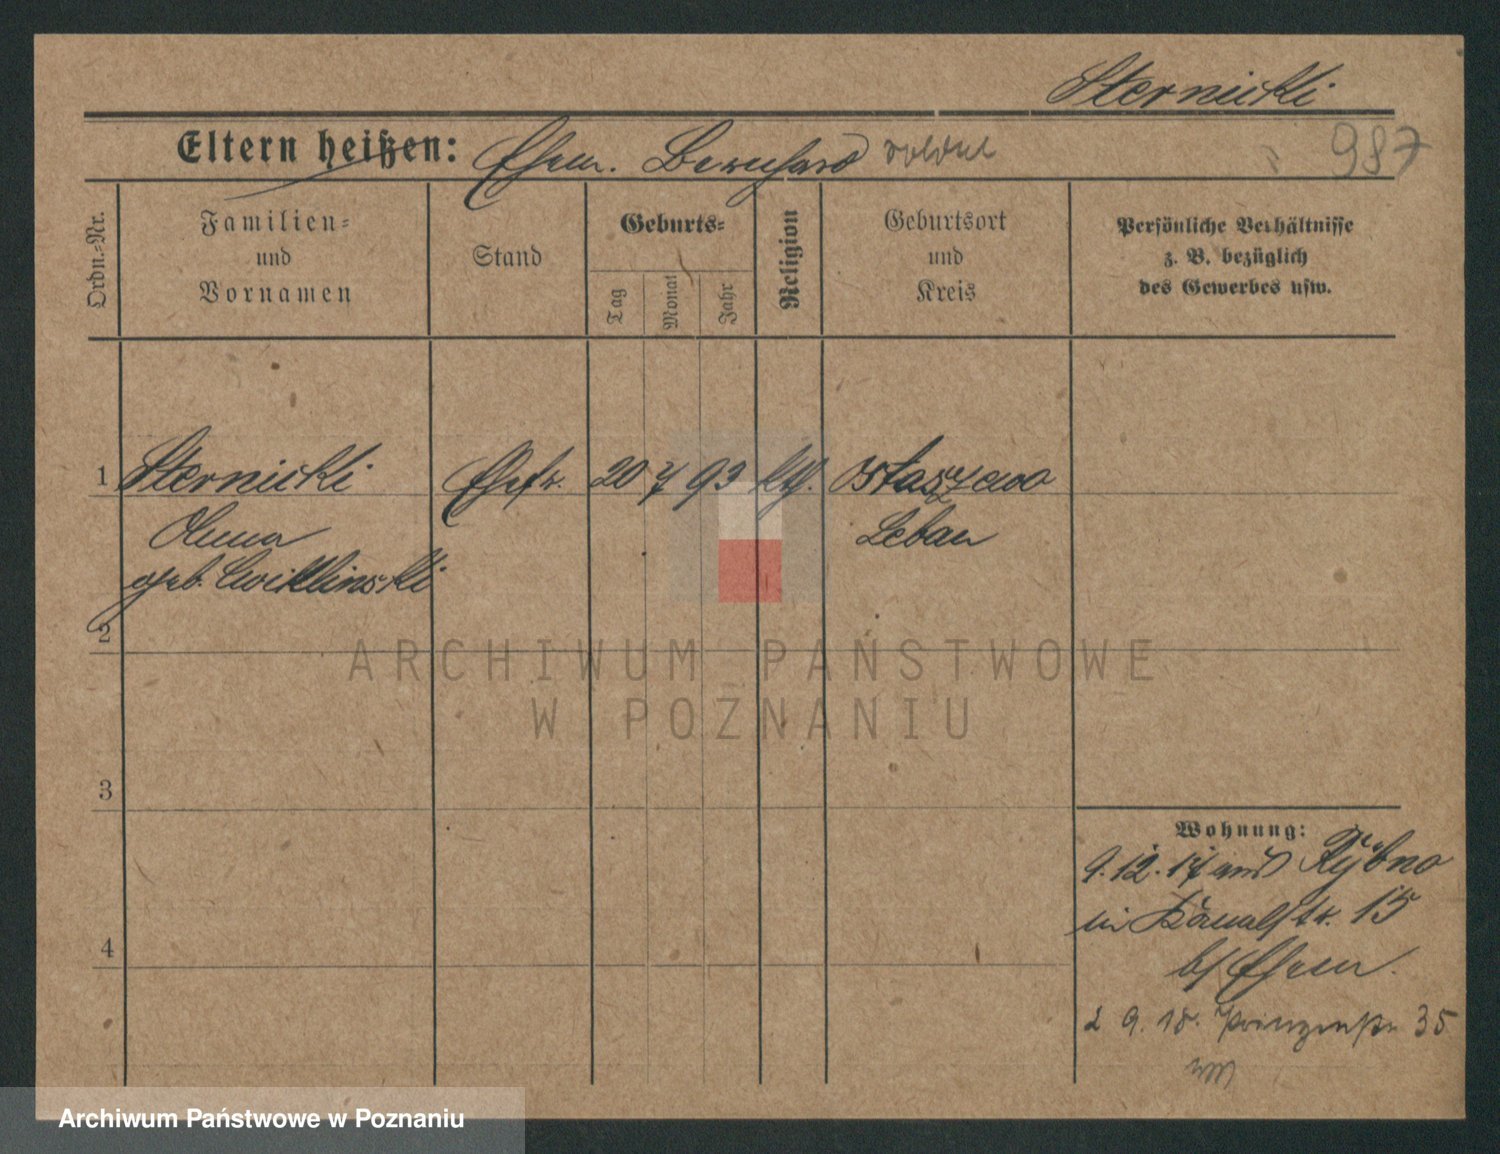 Sternicki
Eltern heißen: Ehem. Bernhard Soldat 987
Ordn.-Nr.
Familien-
und
Vornamen
Stand
Geburts-
Tag
Monat
Jahr
Religion
Geburtsort
und
Kreis
Persönliche Verhältnisse
z. B. bezüglich
des Gewerbes usw.
1 Sternicki Ehefr. 20 7 93 kth. Ostaszewo
Anna Lebau
geb. Cwiklinski
2
ARCHIWUM PAŃSTWOWE
W POZNANIU
3
4
Wohnung:
9.12.17 aus Rybno
in Kanalstr. 15
b/ Ehem.
2 9. 18. Prinzenstr. 35
Archiwum Państwowe w Poznaniu